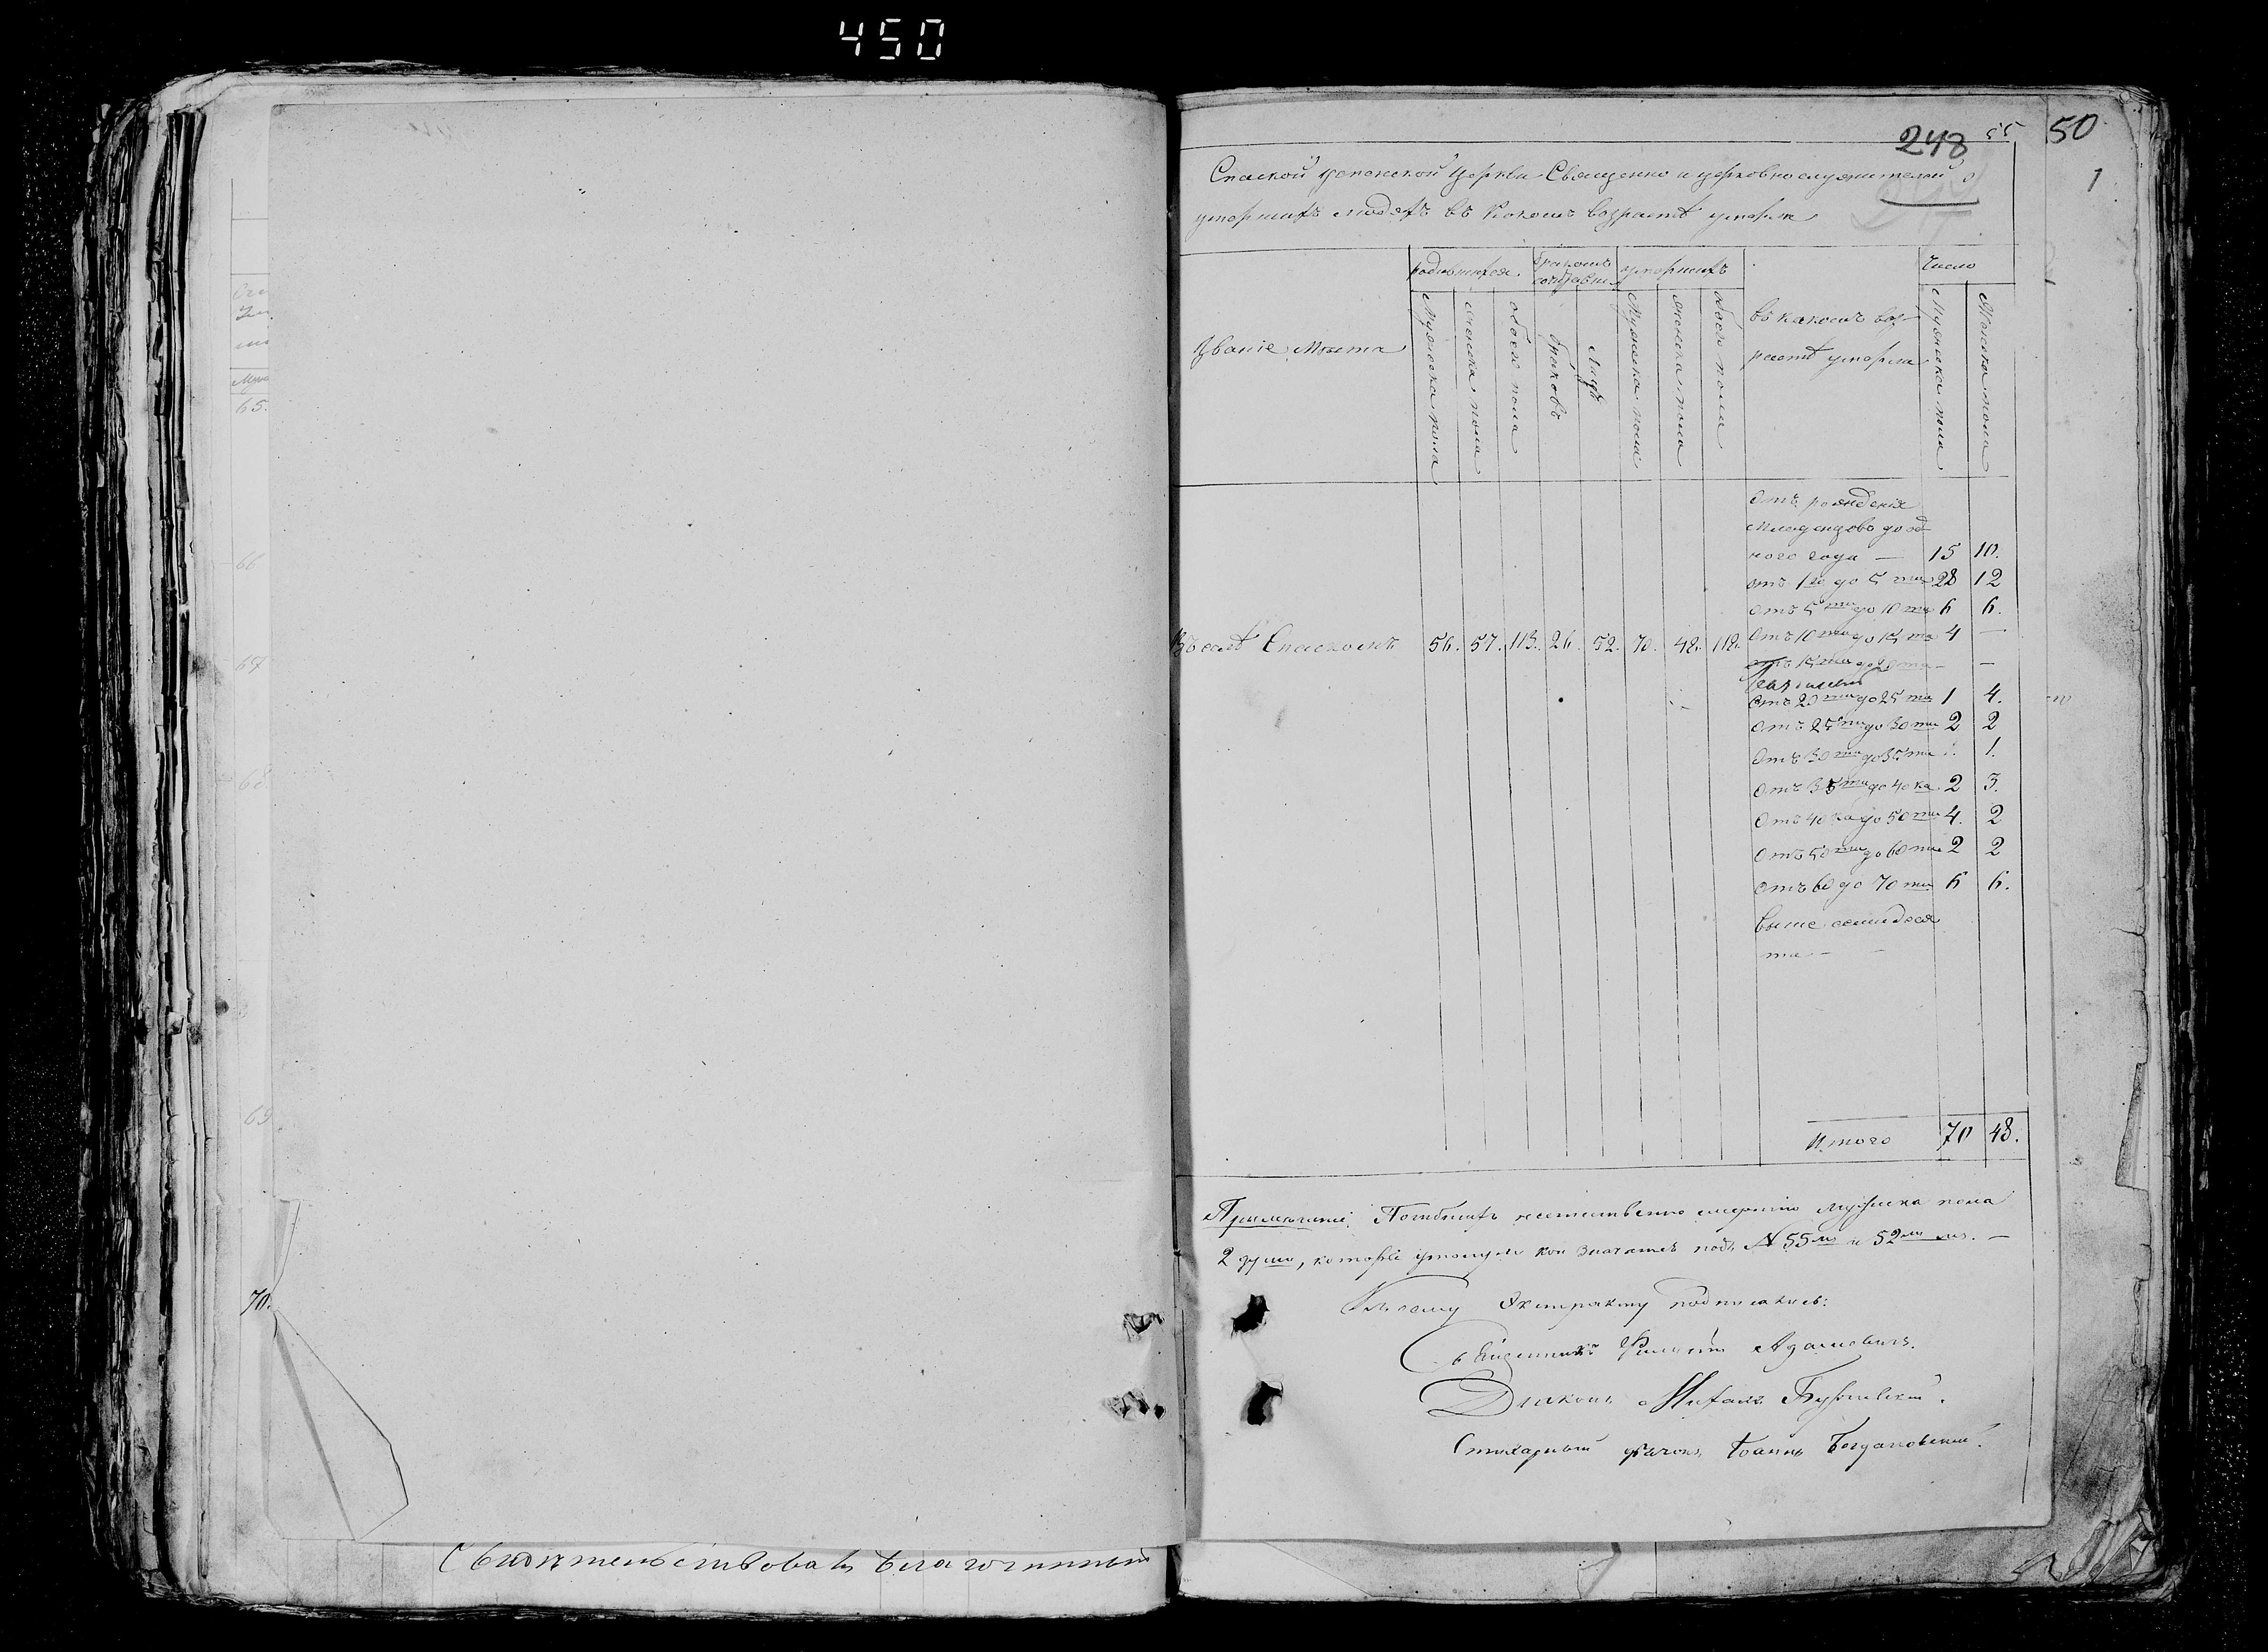 450
248 55 50
1
Спаской успенской Церкви Священно и церковнослужителей о
умершихъ людехъ въ какомъ возрасте умерли
родившихся браком умершихъ Число
Званіе Места
Мужеска пола
женска пола
обоего пола
браковъ
Лицъ
Мужеска пола
женска пола
обоего пола
въ какомъ воз-
расте умерли
Мужеска пола
Женска пола
Отъ рожденія
Младенцовъ до од
ного года — 15 10.
отъ 1го до 5 ти 28 12
Отъ 5 ти до 10 ти 6 6.
Въ селе Спаскомъ 56. 57. 113. 26. 52. 70. 48. 118. Отъ 10 ти до 15 ти 4 —
отъ 15 ти до 20 ти — —
Отъ 20 ти до 25 ти 1 4.
Отъ 25 ти до 30 ти 2 2
Отъ 30 ти до 35 ти 1.
Отъ 35 ти до 40 ка 2 3.
Отъ 40 ка до 50 ти 4. 2
Отъ 50 ти до 60 ти 2 2
Отъ 60 до 70 ти 6 6.
выше семидеся
ти —
Итого 70 48.
Примечание. Погибшихъ неестественно смертию мужеска пола
2 души, которые утонули кои значатся подъ N 55 м и 52 м —
К сему Экстракту подписались:
Священникъ Адамовичъ.
Диаконъ Михаилъ
Стихарный дьячокъ Іоаннъ Богдановский.
65.
66
67
68.
69
70.
Свидетельствовалъ благочинный